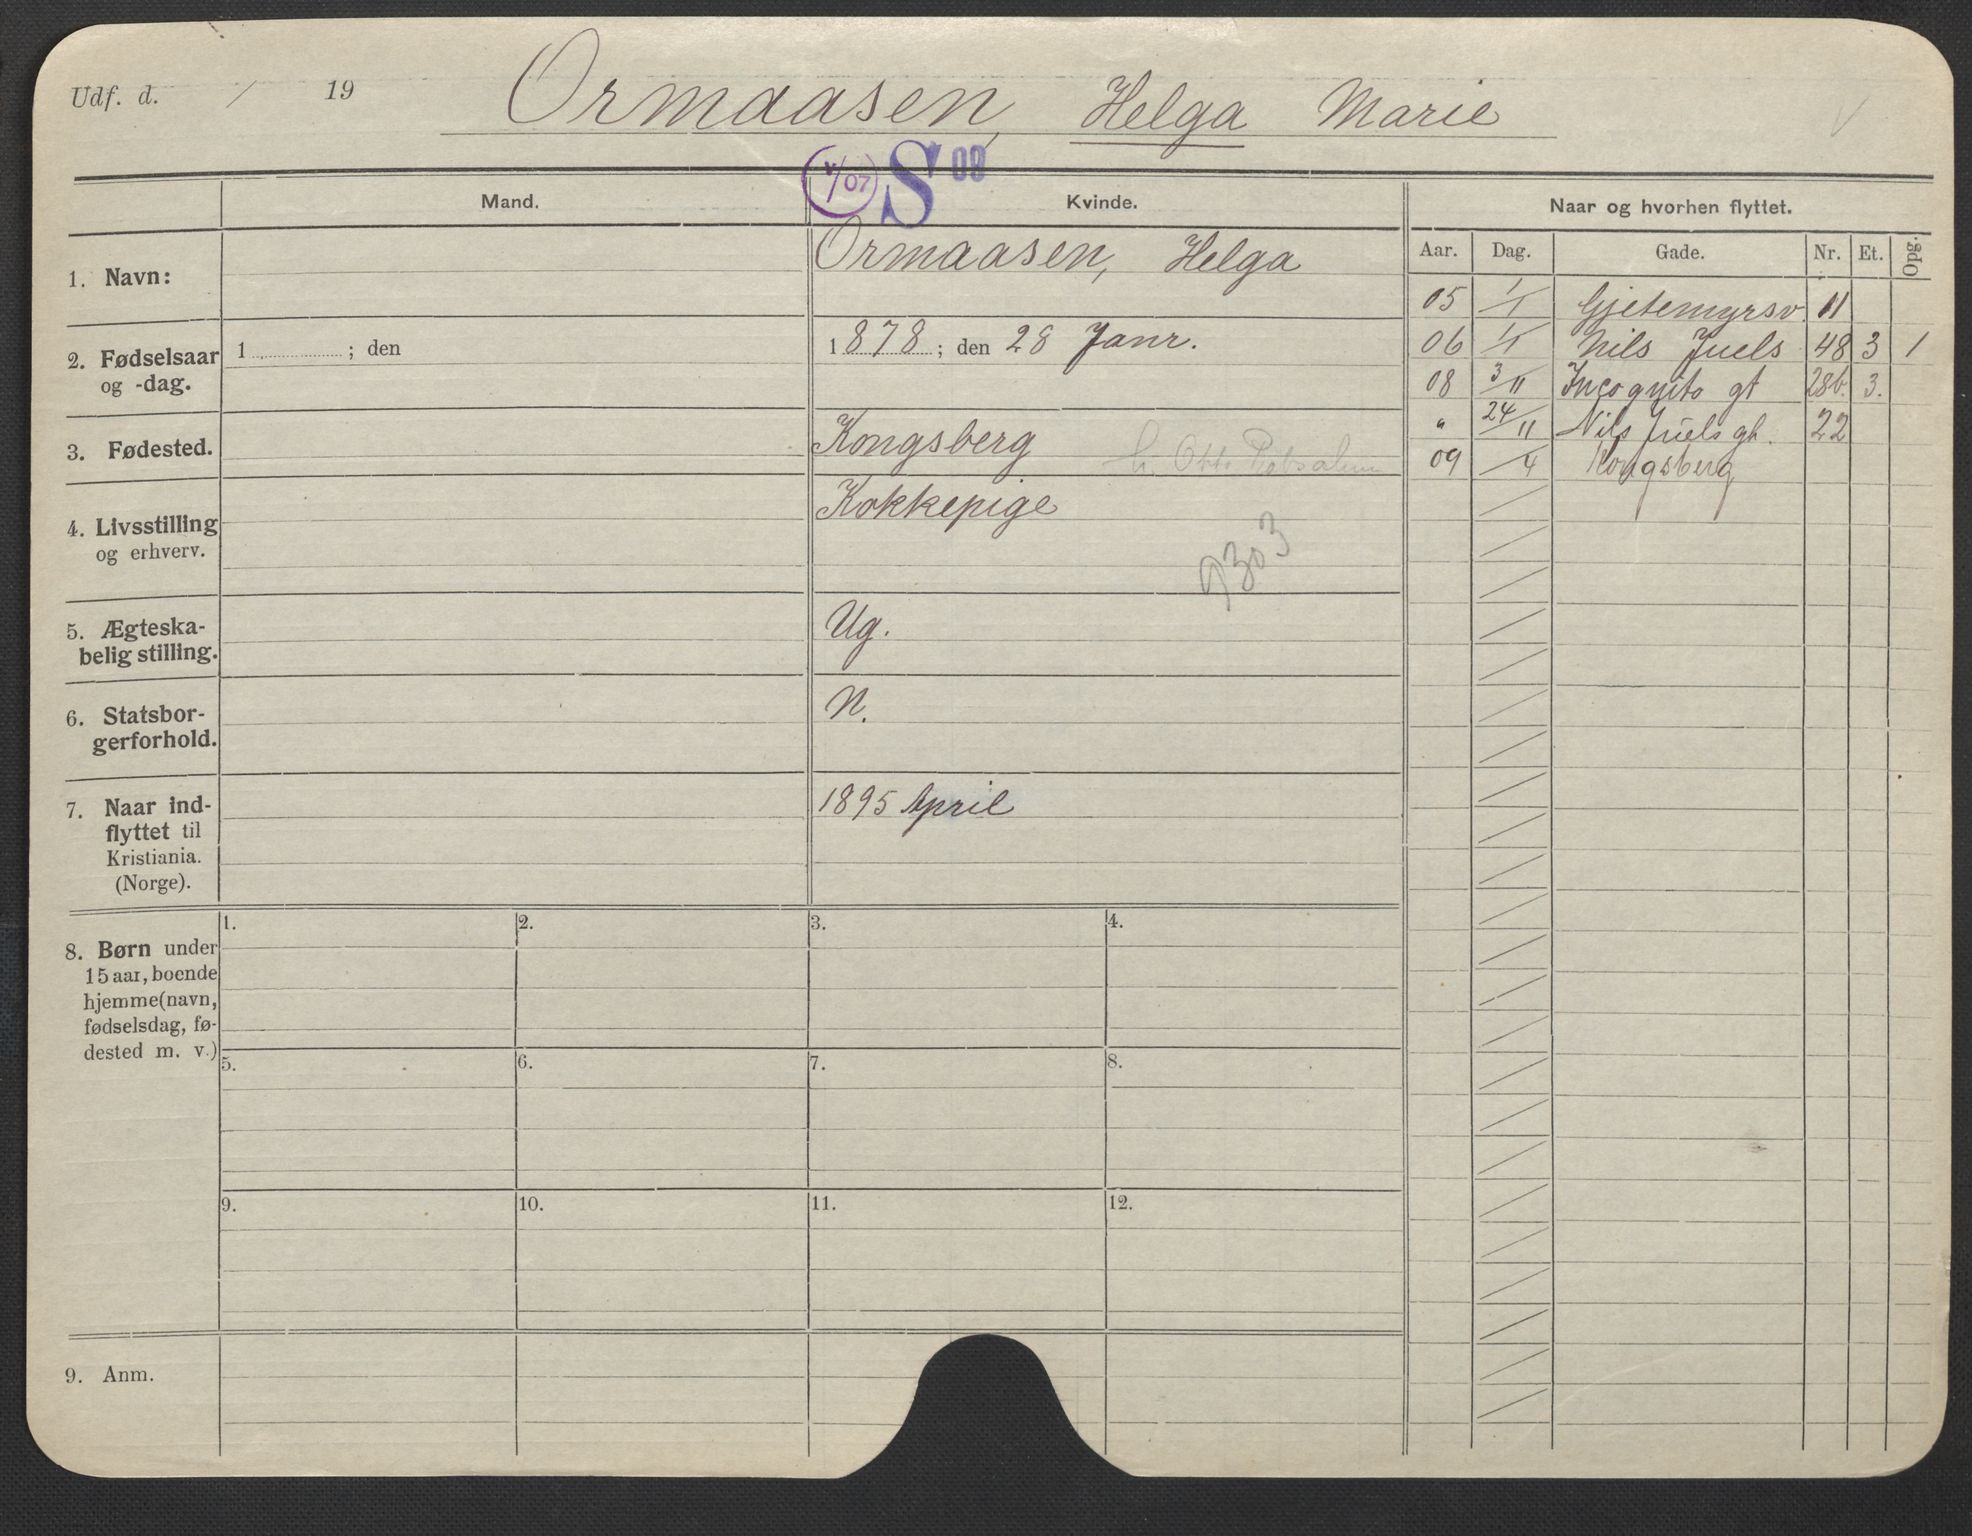 Udf. d. / 19 Ormaasen, Helga Marie
V/07 S 08
Mand. Kvinde. Naar og hvorhen flyttet.
Aar. Dag. Gade. Nr. Et. Opg.
1. Navn: Ormaasen, Helga
2. Fødselsaar og -dag. 1 ; den
1878; den 28 Janr.
3. Fødested. Kongsberg
4. Livsstilling og erhverv. Kokkepige
9303
5. Ægteska-
belig stilling. Ug.
6. Statsbor-
gerforhold. N.
7. Naar ind-
flyttet til
Kristiania.
(Norge). 1895 April
05 1/1 Gjetemyrsv. 11
06 1/1 Nils Juels 48 3 1
08 3/11 Incognito gt 28b. 3.
" 24/11 Nils Juels gt. 22
09 /4 Kongsberg
8. Børn under
15 aar, boende
hjemme (navn,
fødselsdag, fø-
dested m. v.)
1. 2. 3. 4.
5. 6. 7. 8.
9. 10. 11. 12.
9. Anm.